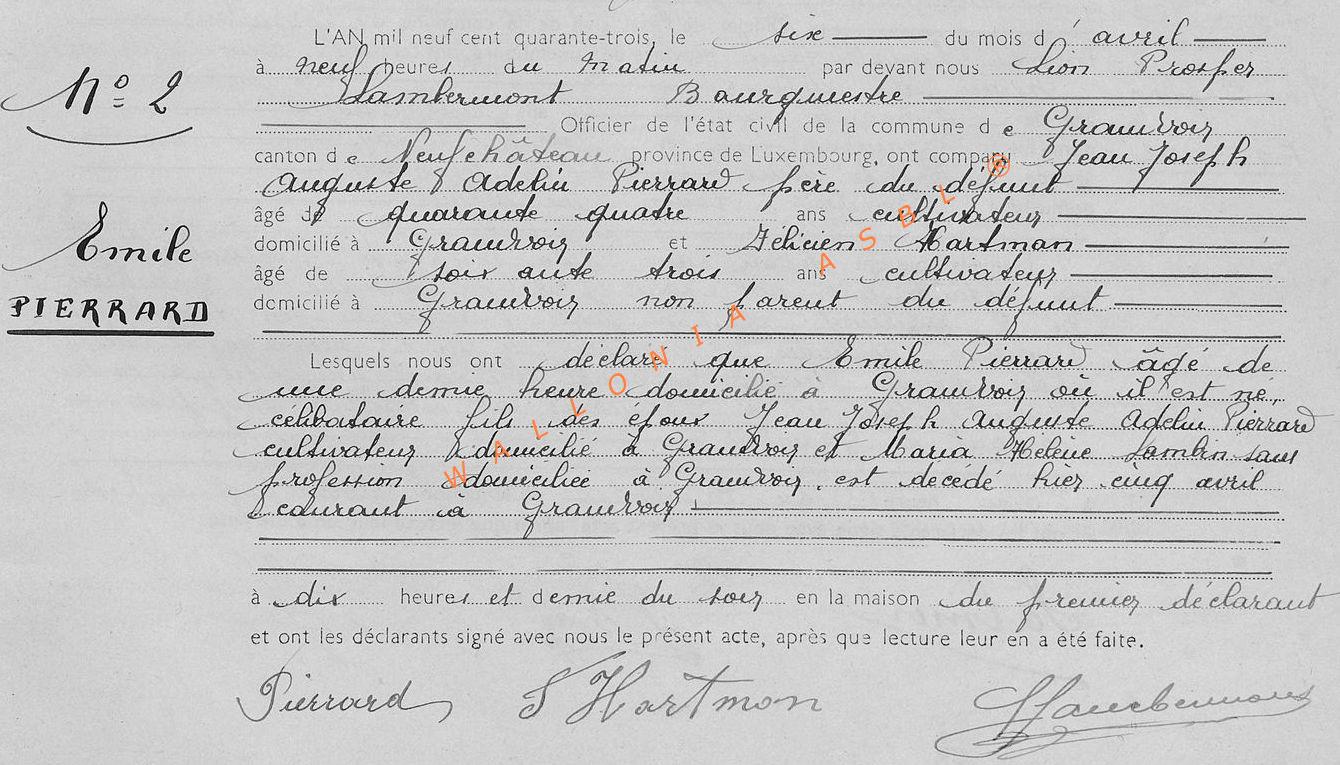 L'AN mil neuf cent quarante-trois, le six du mois d' avril
à neuf heures du matin par devant nous Léon Prosper
Lambermont Bourgmestre
Officier de l'état civil de la commune de Grandvoir
canton de Neufchâteau province de Luxembourg, ont comparu Jean Joseph
Auguste Adelin Pierrard père du défunt
âgé de quarante quatre ans cultivateur
domicilié à Grandvoir et Félicien Hartman
âgé de soixante trois ans cultivateur
domicilié à Grandvoir non parent du défunt
Lesquels nous ont déclaré que Emile Pierrard âgé de
une demie heure domicilié à Grandvoir où il est né,
célibataire fils des époux Jean Joseph Auguste Adelin Pierrard
cultivateur domicilié à Grandvoir et Maria Hélène Lambin sans
profession domiciliée à Grandvoir, est décédé hier cinq avril
courant à Grandvoir
à dix heures et demie du soir en la maison du premier déclarant
et ont les déclarants signé avec nous le présent acte, après que lecture leur en a été faite.
Pierrard F Hartman Lambermont
N° 2
Emile
PIERRARD
WALLONIA ASBL ®